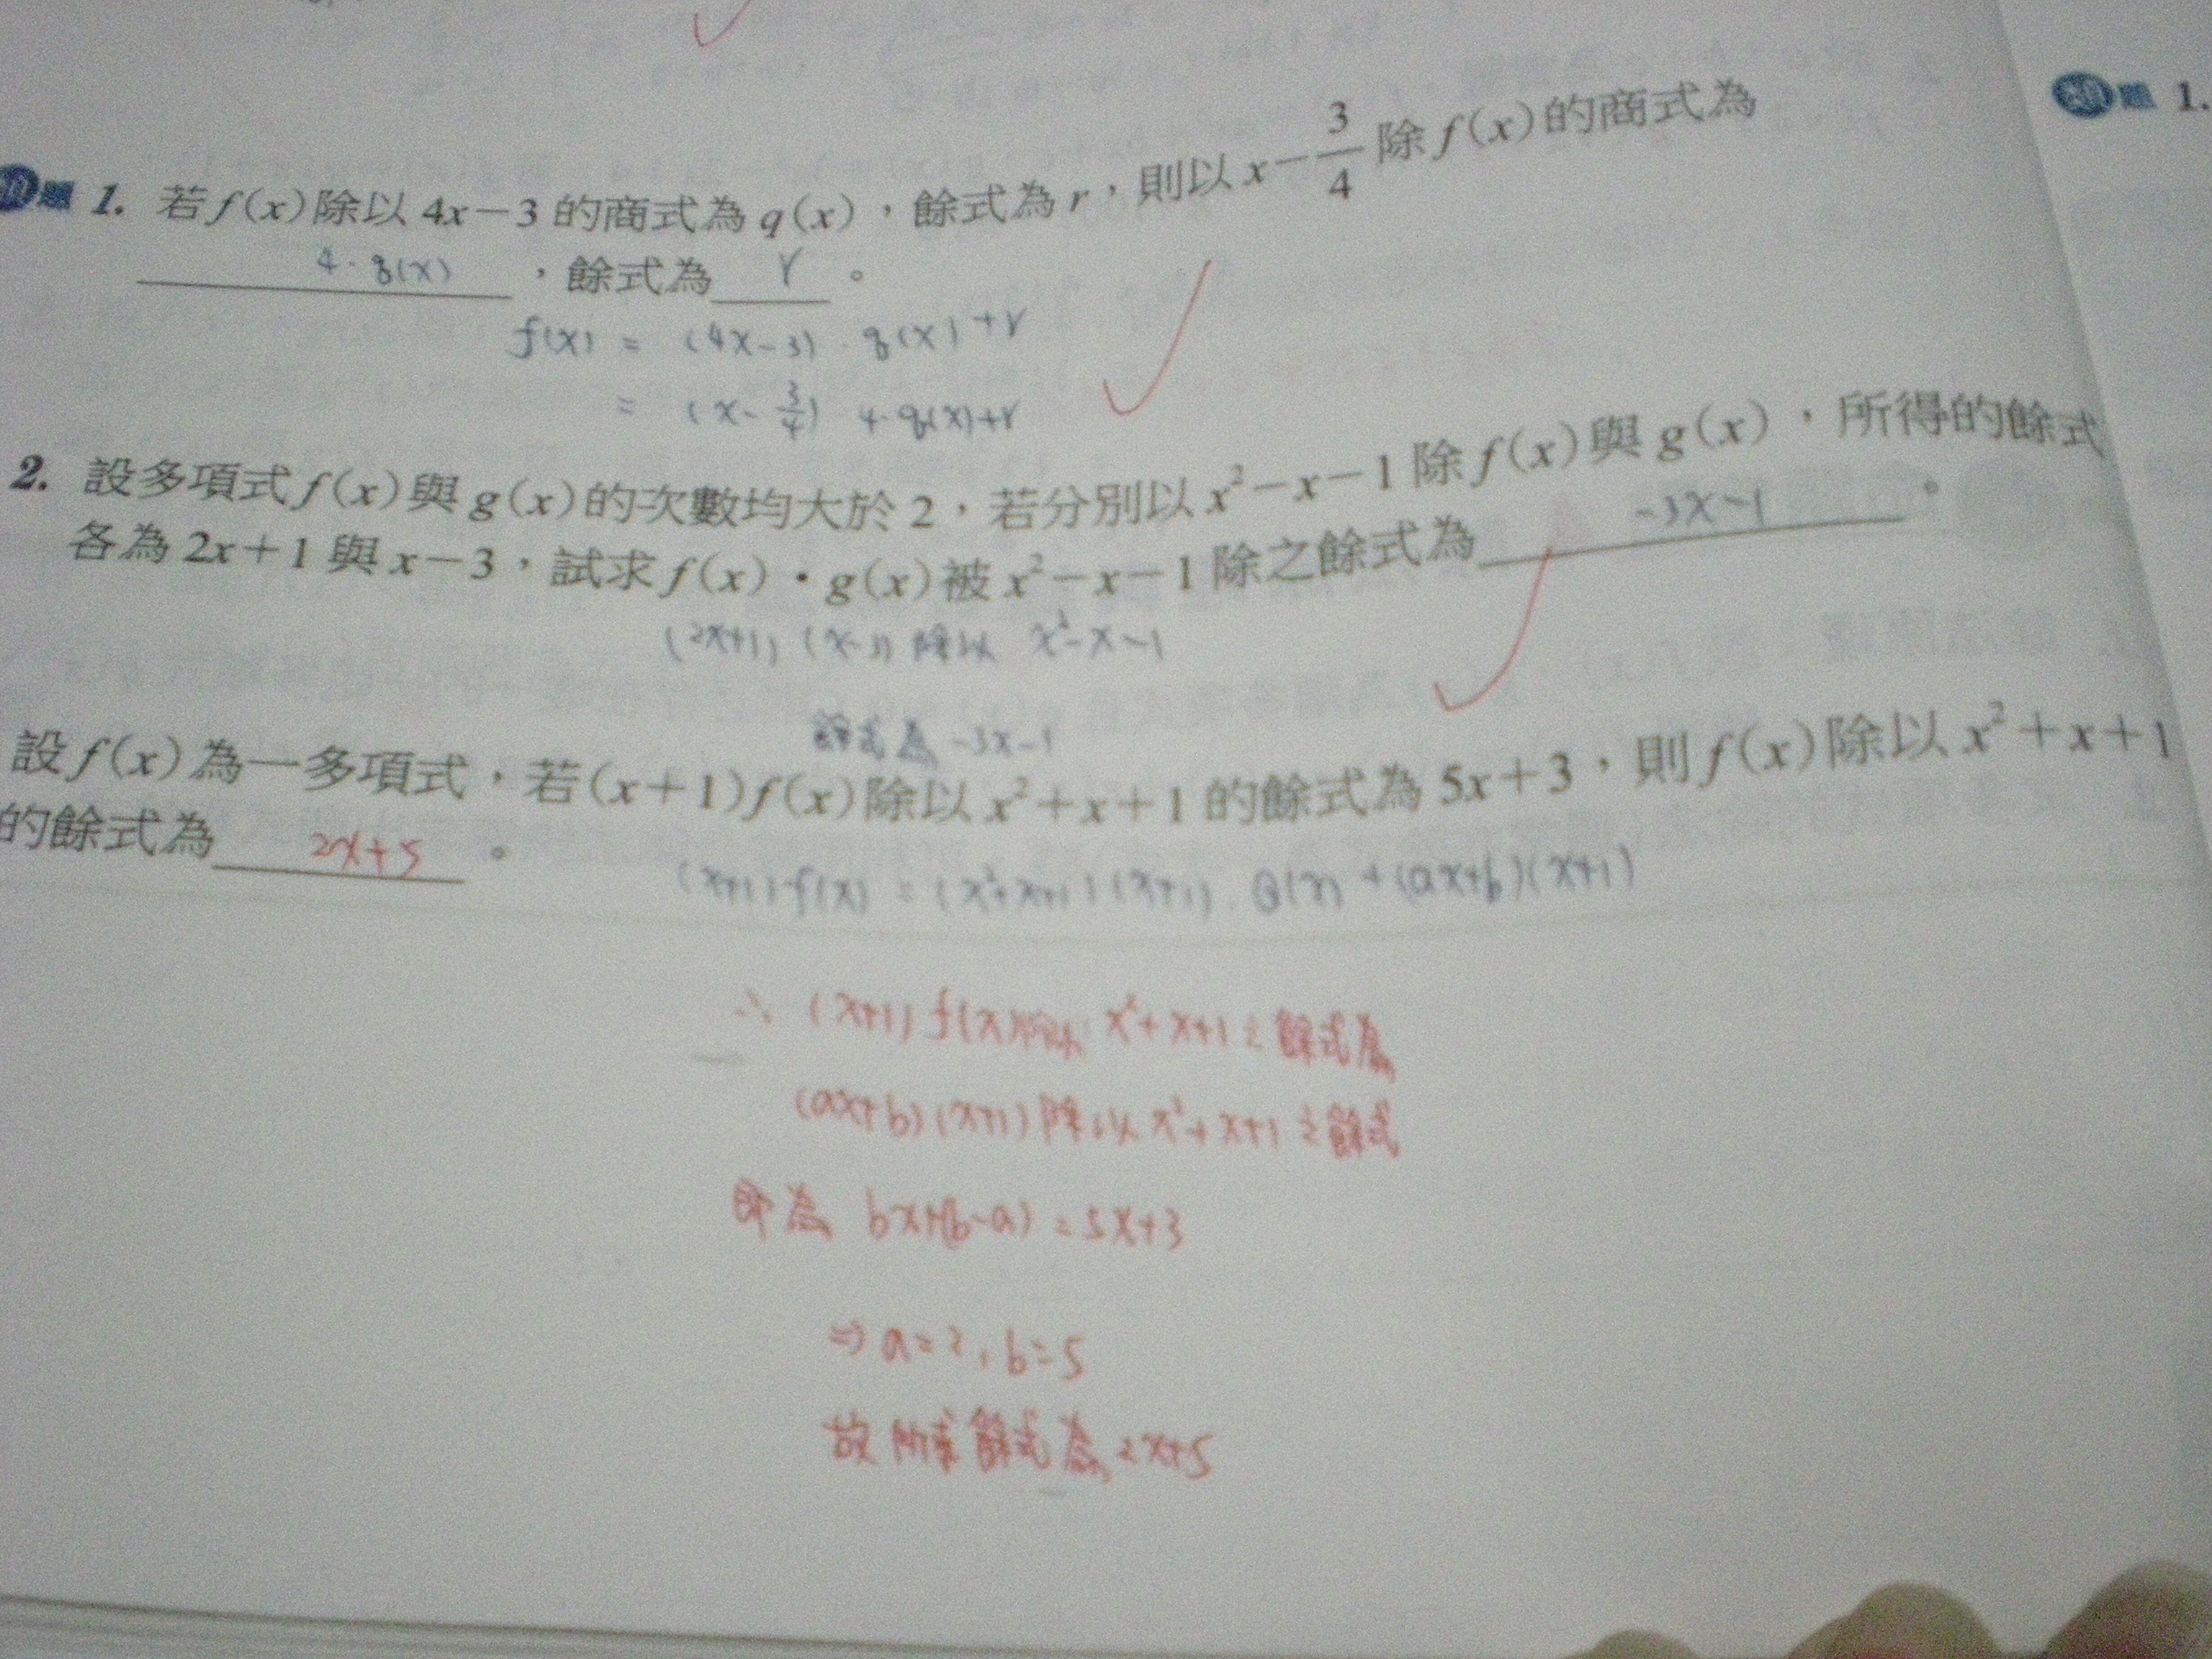 題 1.
題 1. 若 f(x) 除以 4x－3 的商式為 q(x)，餘式為 r，則以 x－3/4 除 f(x) 的商式為
4·q(x)，餘式為 r。
f(x) = (4x-3)·q(x)+r
= (x-3/4) 4·q(x)+r
2. 設多項式 f(x) 與 g(x) 的次數均大於 2，若分別以 x²－x－1 除 f(x) 與 g(x)，所得的餘式
各為 2x＋1 與 x－3，試求 f(x)·g(x) 被 x²－x－1 除之餘式為 -3x-1。
(2x+1)(x-3) 除以 x²-x-1
餘式為 -3x-1
設 f(x) 為一多項式，若 (x＋1)f(x) 除以 x²＋x＋1 的餘式為 5x＋3，則 f(x) 除以 x²＋x＋1
的餘式為 2x+5。
(x+1)f(x) = (x²+x+1)(x+1)·Q(x)+(ax+b)(x+1)
∴ (x+1)f(x)除以 x²+x+1 之餘式為
(ax+b)(x+1)除以 x²+x+1 之餘式
即為 bx+(b-a) = 5x+3
⇒ a=2, b=5
故所求餘式為 2x+5